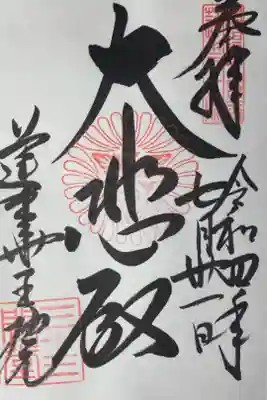 奉拝
令和四年
七月廿一日
大悲殿
蓮華王院